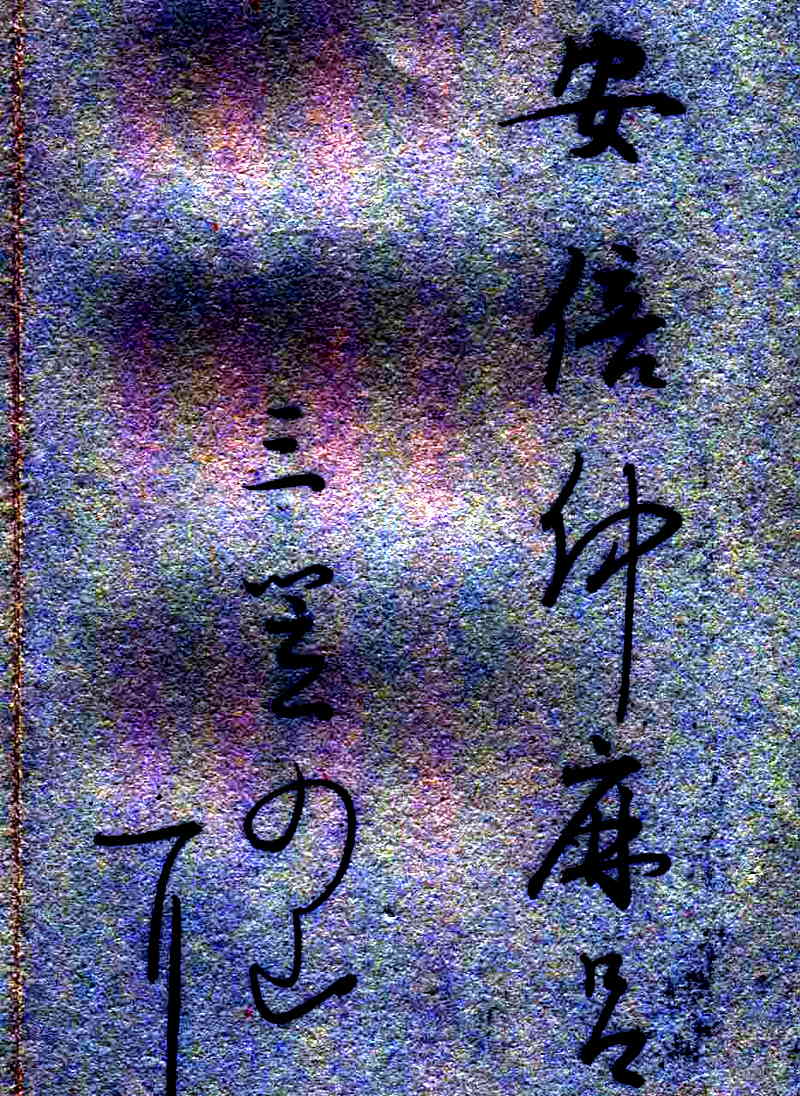 安倍仲麻呂
三笠の山